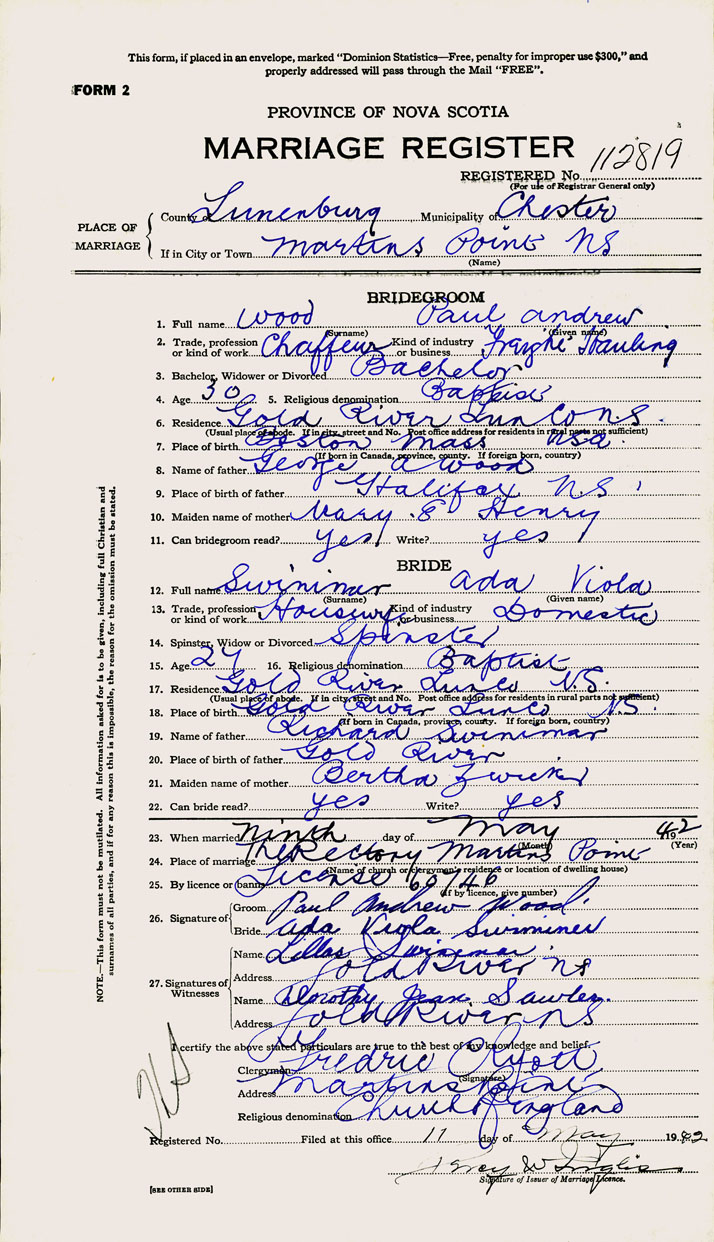 This form, if placed in an envelope, marked "Dominion Statistics—Free, penalty for improper use $300," and
properly addressed will pass through the Mail "FREE".
FORM 2
PROVINCE OF NOVA SCOTIA
MARRIAGE REGISTER
REGISTERED No. 112819
(For use of Registrar General only)
PLACE OF MARRIAGE
County of Lunenburg Municipality of Chester
If in City or Town Martins Point NS
(Name)
BRIDEGROOM
1. Full name Wood Paul Andrew
(Surname) (Given name)
2. Trade, profession or kind of work Chaffeur Kind of industry or business Hauling
3. Bachelor, Widower or Divorced Bachelor
4. Age 30 5. Religious denomination Baptist
6. Residence Gold River Lun Co N.S.
(Usual place of abode. If in city, street and No. Post office address for residents in rural parts not sufficient)
7. Place of birth Boston Mass USA.
(If born in Canada, province, county. If foreign born, country)
8. Name of father George A Wood
9. Place of birth of father Halifax N.S
10. Maiden name of mother Mary E Henry
11. Can bridegroom read? Yes Write? yes
BRIDE
12. Full name Swinimar Ada Viola
(Surname) (Given name)
13. Trade, profession or kind of work Housewife Kind of industry or business Domestic
14. Spinster, Widow or Divorced Spinster
15. Age 24 16. Religious denomination Baptist
17. Residence Gold River Lun Co N.S.
(Usual place of abode. If in city, street and No. Post office address for residents in rural parts not sufficient)
18. Place of birth Gold River Lun Co N.S.
(If born in Canada, province, county. If foreign born, country)
19. Name of father Richard Swinimar
20. Place of birth of father Gold River
21. Maiden name of mother Bertha Zwicker
22. Can bride read? yes Write? yes
23. When married Ninth day of May 1942
(Month) (Year)
24. Place of marriage The Rectory Martins Point
(Name of church or clergyman's residence or location of dwelling house)
25. By licence or banns License
(If by licence, give number)
26. Signature of
Groom Paul Andrew Wood
Bride Ada Viola Swinimer
27. Signatures of Witnesses
Name Swinimar
Address Gold River NS
Name Dorothy Jean Sawler
Address Gold River NS
I certify the above stated particulars are true to the best of my knowledge and belief.
Clergyman Fredric Ryott
(Signature)
Address Martins Point
Religious denomination Church of England
Registered No. Filed at this office 11 day of May 1942
Percy W Inglis
Signature of Issuer of Marriage Licence.
[SEE OTHER SIDE]
NOTE.—This form must not be mutilated. All information asked for is to be given, including full Christian and
surnames of all parties, and if for any reason this is impossible, the reason for the omission must be stated.